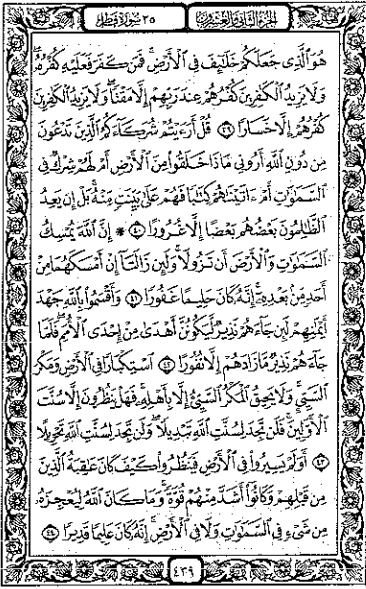 الجزء الثاني والعشرون
٣٥ سورة فاطر
هُوَ الَّذِي جَعَلَكُمْ خَلَٰٓئِفَ فِي الْأَرْضِ ۚ فَمَن كَفَرَ فَعَلَيْهِ كُفْرُهُۥ ۖ
وَلَا يَزِيدُ الْكَٰفِرِينَ كُفْرُهُمْ عِندَ رَبِّهِمْ إِلَّا مَقْتًا ۖ وَلَا يَزِيدُ الْكَٰفِرِينَ
كُفْرُهُمْ إِلَّا خَسَارًا ﴿٣٩﴾ قُلْ أَرَءَيْتُمْ شُرَكَآءَكُمُ الَّذِينَ تَدْعُونَ
مِن دُونِ اللَّهِ أَرُونِي مَاذَا خَلَقُوا مِنَ الْأَرْضِ أَمْ لَهُمْ شِرْكٌ فِي
السَّمَٰوَٰتِ أَمْ ءَاتَيْنَٰهُمْ كِتَٰبًا فَهُمْ عَلَىٰ بَيِّنَتٍ مِّنْهُ ۚ بَلْ إِن يَعِدُ
الظَّٰلِمُونَ بَعْضُهُم بَعْضًا إِلَّا غُرُورًا ﴿٤٠﴾ ۞ إِنَّ اللَّهَ يُمْسِكُ
السَّمَٰوَٰتِ وَالْأَرْضَ أَن تَزُولَا ۚ وَلَئِن زَالَتَآ إِنْ أَمْسَكَهُمَا مِنْ
أَحَدٍ مِّنۢ بَعْدِهِۦٓ ۚ إِنَّهُۥ كَانَ حَلِيمًا غَفُورًا ﴿٤١﴾ وَأَقْسَمُوا بِاللَّهِ جَهْدَ
أَيْمَٰنِهِمْ لَئِن جَآءَهُمْ نَذِيرٌ لَّيَكُونُنَّ أَهْدَىٰ مِنْ إِحْدَى الْأُمَمِ ۖ فَلَمَّا
جَآءَهُمْ نَذِيرٌ مَّا زَادَهُمْ إِلَّا نُفُورًا ﴿٤٢﴾ اسْتِكْبَارًا فِي الْأَرْضِ وَمَكْرَ
السَّيِّئِ ۚ وَلَا يَحِيقُ الْمَكْرُ السَّيِّئُ إِلَّا بِأَهْلِهِۦ ۚ فَهَلْ يَنظُرُونَ إِلَّا سُنَّتَ
الْأَوَّلِينَ ۚ فَلَن تَجِدَ لِسُنَّتِ اللَّهِ تَبْدِيلًا ۖ وَلَن تَجِدَ لِسُنَّتِ اللَّهِ تَحْوِيلًا
﴿٤٣﴾ أَوَلَمْ يَسِيرُوا فِي الْأَرْضِ فَيَنظُرُوا كَيْفَ كَانَ عَٰقِبَةُ الَّذِينَ
مِن قَبْلِهِمْ وَكَانُوٓا أَشَدَّ مِنْهُمْ قُوَّةً ۚ وَمَا كَانَ اللَّهُ لِيُعْجِزَهُۥ
مِن شَيْءٍ فِي السَّمَٰوَٰتِ وَلَا فِي الْأَرْضِ ۚ إِنَّهُۥ كَانَ عَلِيمًا قَدِيرًا ﴿٤٤﴾
٤٣٩